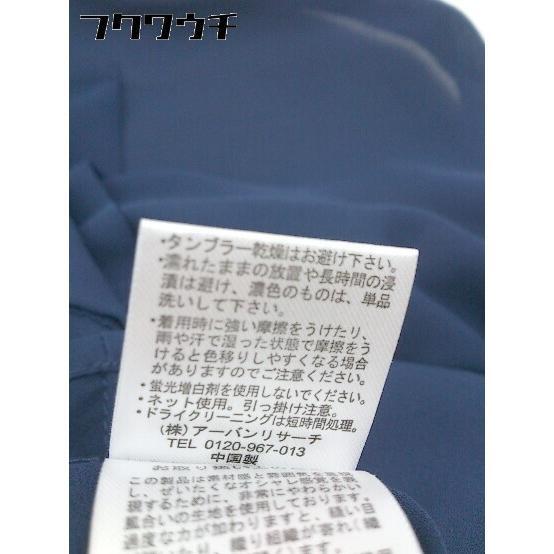 フクウウチ
・タンブラー乾燥はお避け下さい。
・濡れたままの放置や長時間の浸
漬は避け、濃色のものは、単品
洗いして下さい。
・着用時に強い摩擦をうけたり、
雨や汗で湿った状態で摩擦をう
けると色移りしやすくなる場合
がありますのでご注意ください。
・蛍光増白剤を使用しないでください。
・ネット使用。引っ掛け注意。
・ドライクリーニングは短時間処理。
(株)アーバンリサーチ
TEL 0120-967-013
中国製
この製品は素材感と雰囲気を重視
し、ぜいたくなオシャレ感覚を表
現するために、非常にやわらかい
風合いの生地を使用しております。
過度な力が加わりますと、縫い目